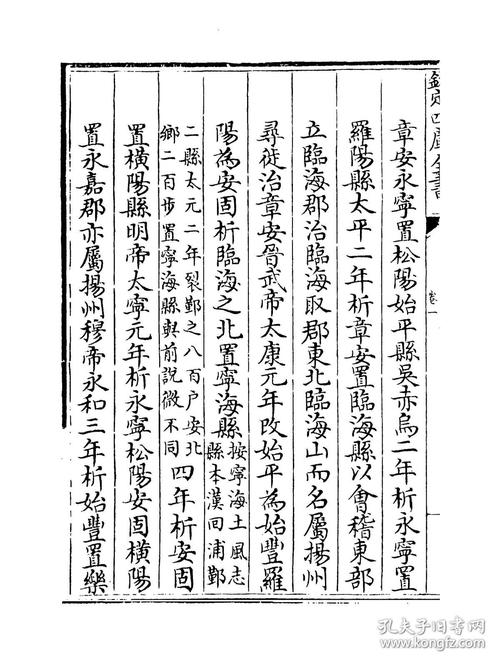 欽定四庫全書
卷一
章安永寧置松陽始平縣吳赤烏二年析永寧置
羅陽縣太平二年析章安置臨海縣以會稽東部
立臨海郡治臨海取郡東北臨海山而名屬揚州
尋徙治章安晉武帝太康元年改始平為始豐羅
陽為安固析臨海之北置寧海縣按寧海土風志
縣本漢回浦鄞
二縣太元二年裂鄞之八百户安北
鄉二百步置寧海縣與前說微不同四年析安固
置橫陽縣明帝太寧元年析永寧松陽安固橫陽
置永嘉郡亦屬揚州穆帝永和三年析始豐置樂
孔夫子旧书网
kongfz.com